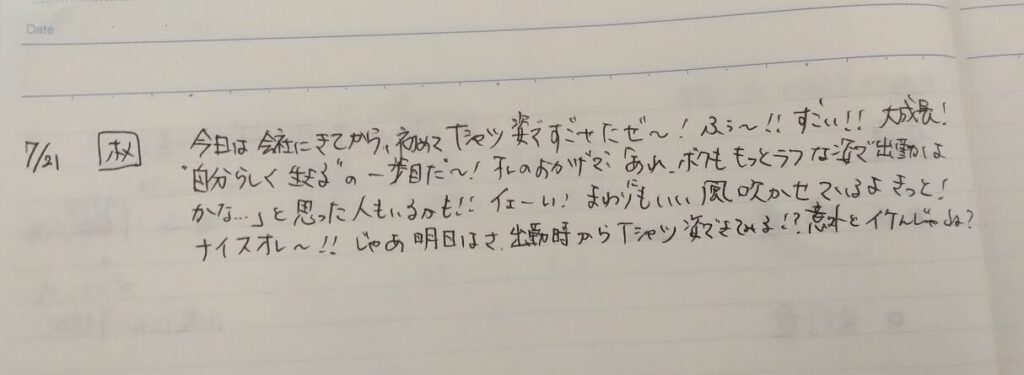 Date
7/21 ホメ 今日は会社にきてから、初めてTシャツ姿ですごせたぜ〜！ふぅ〜!! すごい!! 大成長！
"自分らしく生きる"の一歩目だ〜！オレのおかげで、「あれ、ボクももっとラフな姿で出勤しよ
かな…」と思った人もいるかも!! イェーい！まわりにもいい風吹かせているよきっと！
ナイスオレ〜!! じゃあ明日はさ、出勤時からTシャツ姿できてみる!? 意外とイケんじゃね？